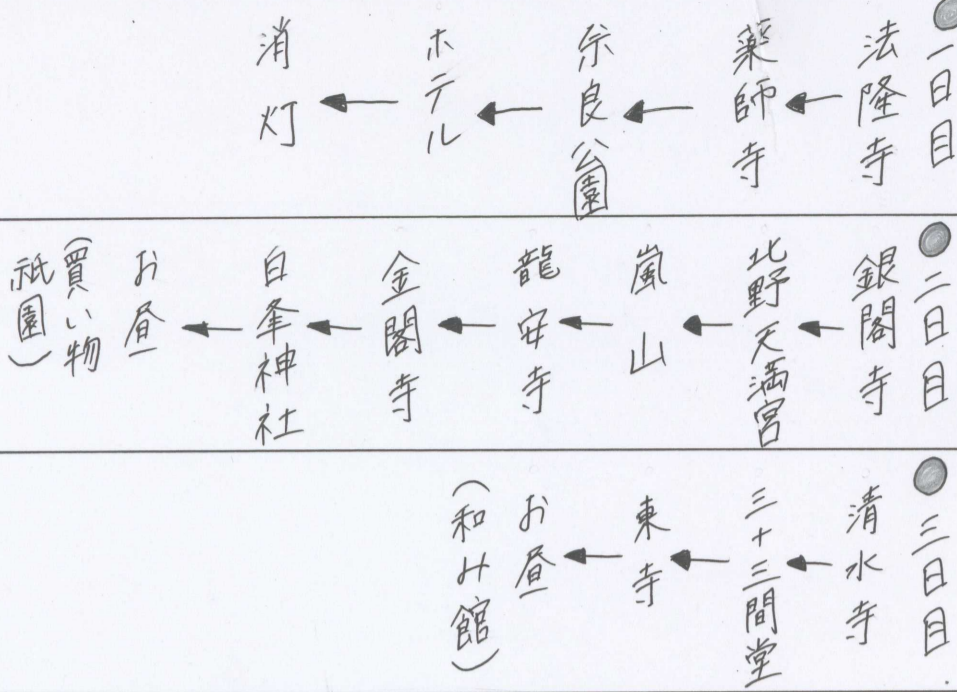 ●一日目
法隆寺
←薬師寺
←奈良公園
←ホテル
←消灯
●二日目
銀閣寺
←北野天満宮
←嵐山
←龍安寺
←金閣寺
←白峯神社
←お昼
(買い物
祇園)
●三日目
清水寺
←三十三間堂
←東寺
←お昼
(和み館)